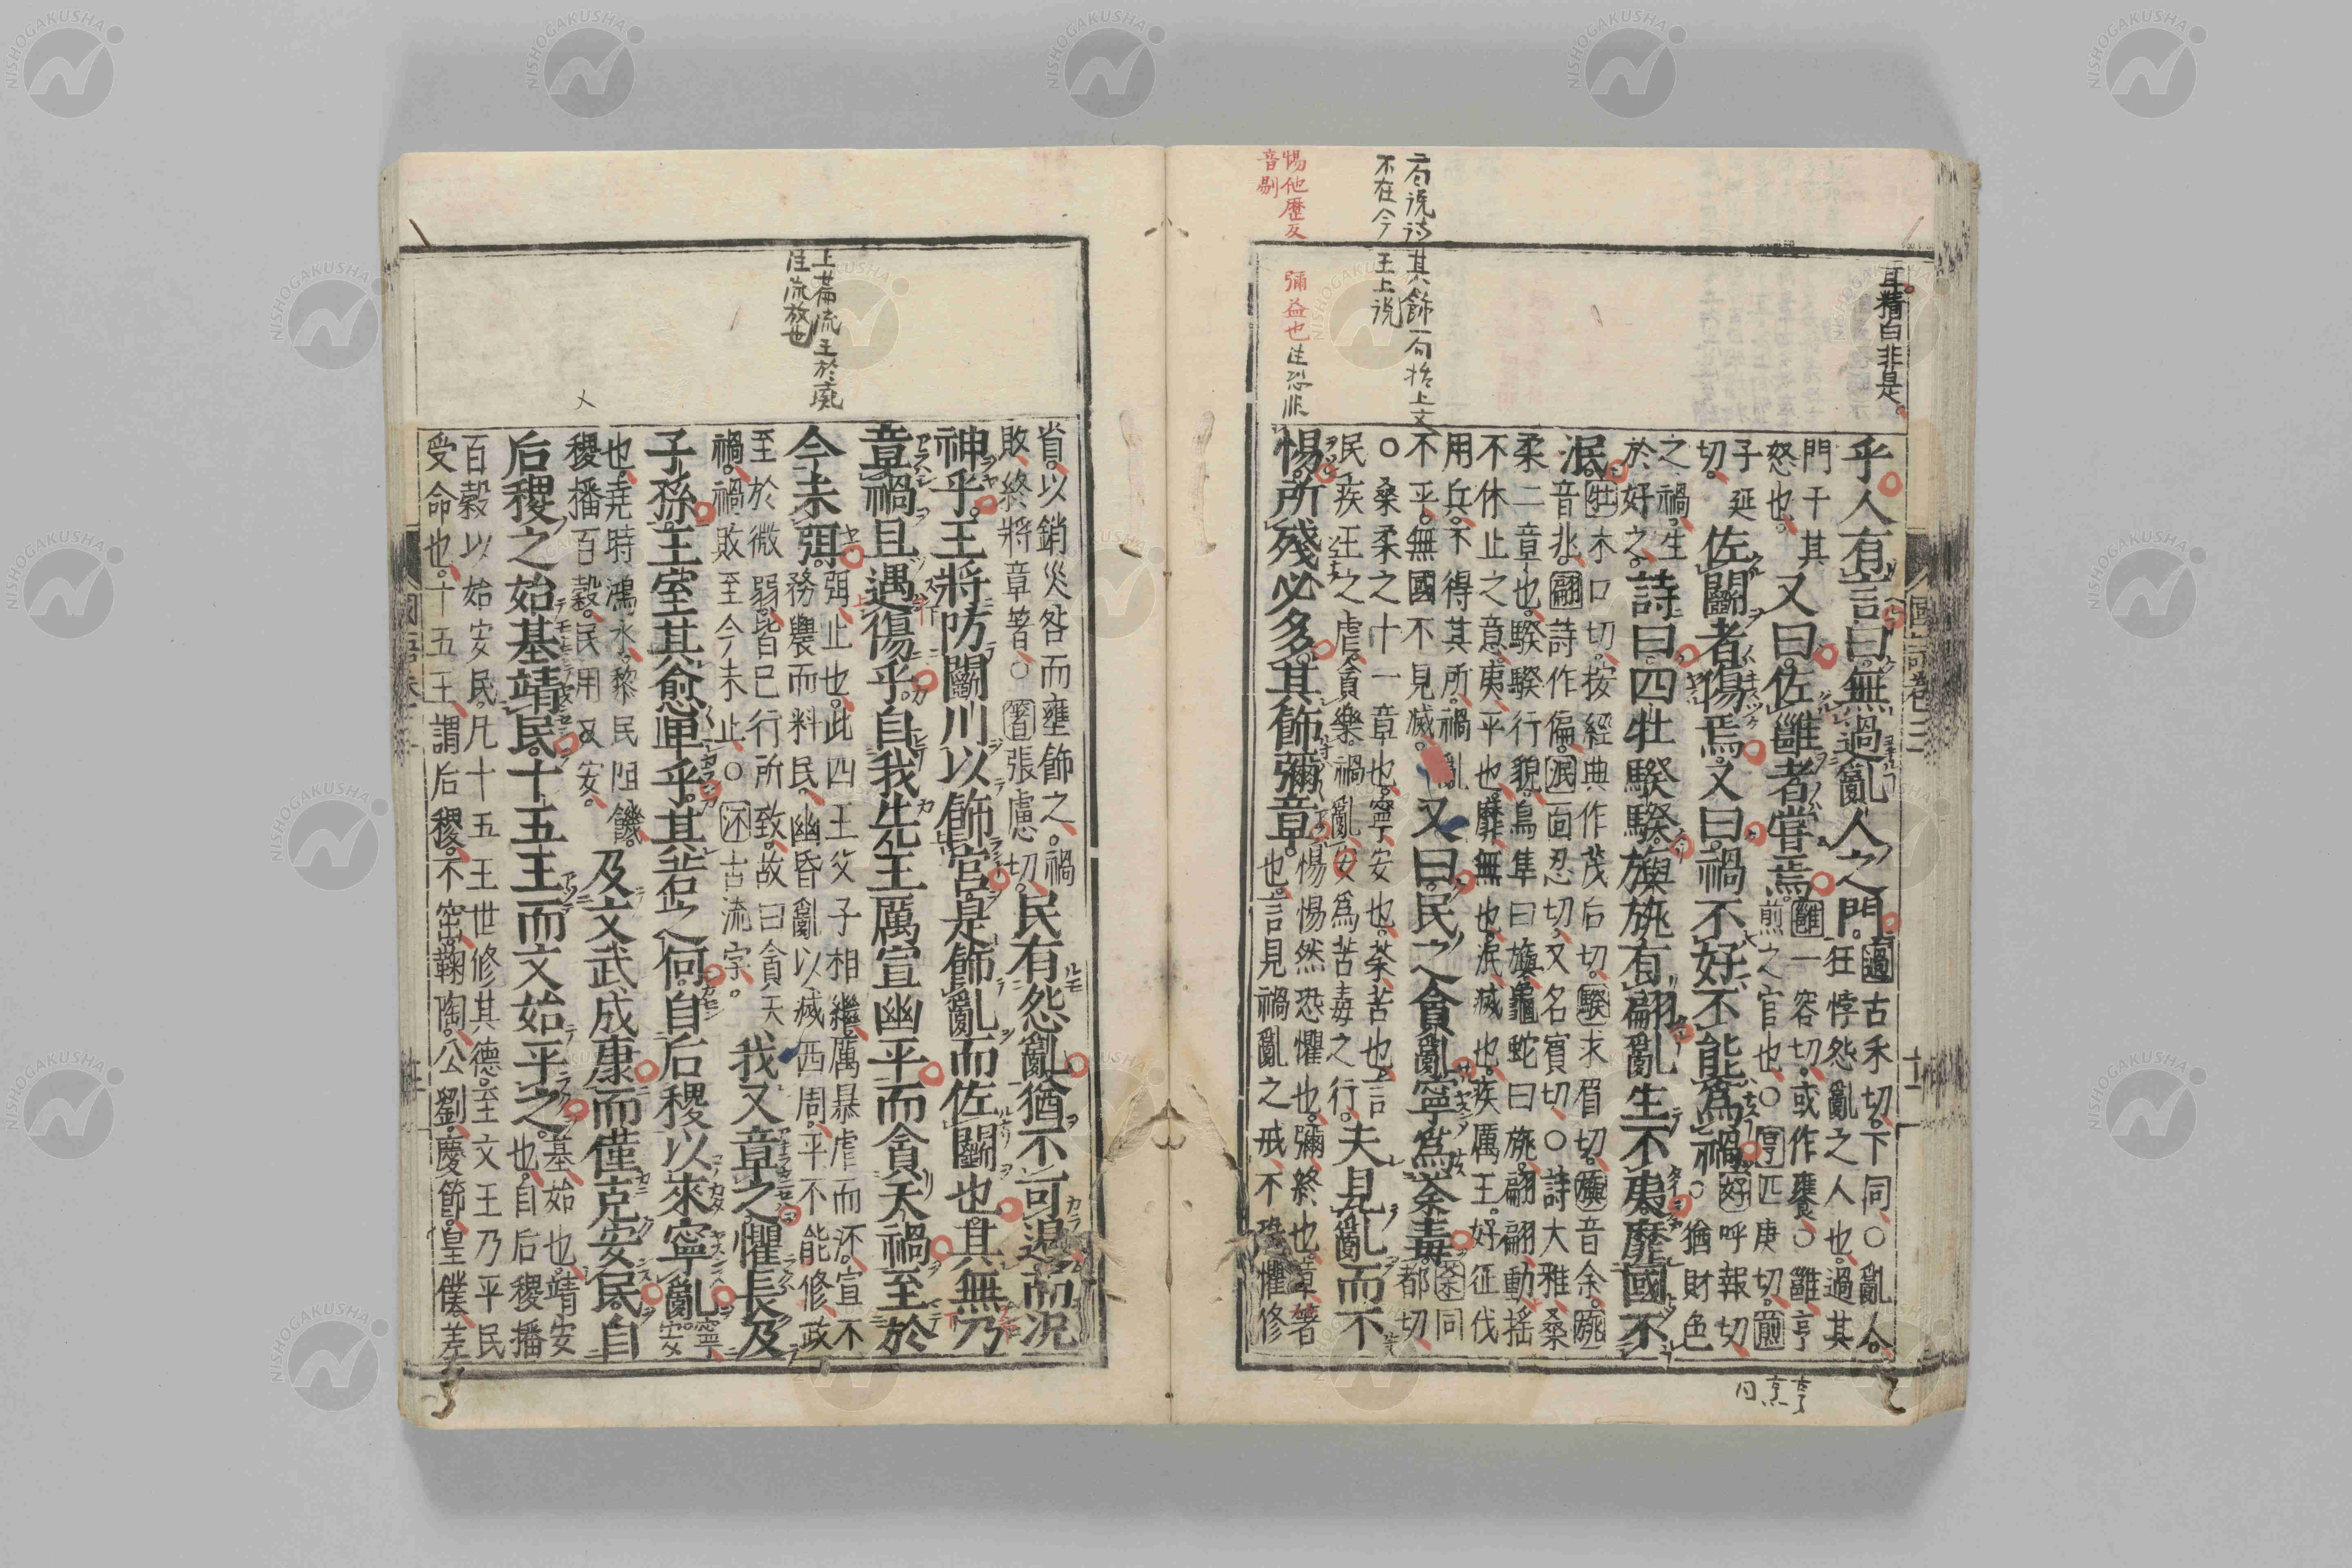 耳精白非是。
乎人有言曰。無過亂人之門。
過古禾切。下同。○亂人。
狂悖怨亂之人也。過其
門干其
怒也。
又曰。佐雝者嘗焉。
雝一容切。或作饔。○雝亨
煎之官也。○亨匹庚切。煎
子延
切。
佐鬬者傷焉。又曰。禍不好不能爲禍。
好呼報切。
○猶財色
之禍。生
於好之。
詩曰。四牡騤騤。旟旐有翩。亂生不夷。靡國不
泯。
牡木口切。按經典作茂后切。騤求眉切。旟音余。旐
音兆。翩詩作偏。泯面忍切。又名賓切。○詩大雅桑
柔二章也。騤騤行貌。鳥隼曰旟。龜蛇曰旐。翩翩動搖
不休止之意。夷平也。靡無也。泯滅也。疾厲王。好征伐
用兵。不得其所。禍亂
不平。無國不見滅。
又曰。民之貪亂。寧爲荼毒。
荼同
都切。
○桑柔之十一章也。寧安也。荼苦也。言
民疾王之虐。貪樂禍亂。安爲苦毒之行。
夫見亂而不
惕。所殘必多。其飾彌章。
惕惕然恐懼也。彌終也。章著
也。言見禍亂之戒。不恐懼修
惕他歷反
音剔
彌益也
注恐非
不在今王上説
國語卷三
省。以銷災咎。而壅飾之。禍
敗終將章著。○著張慮切。
民有怨亂。猶不可遏。而況
神乎。王將防鬬川以飾宮。是飾亂而佐鬬也。其無乃
章禍且遇傷乎。自我先王厲宣幽平而貪天禍。至於
今未弭。
弭止也。此四王父子相繼。厲暴虐而流。宣不
務農而料民。幽昏亂以滅西周。平不能修政
至於微弱。皆己行所致。故曰貪天
禍。禍敗至今未止。○㳅古流字。
我又章之。懼長及
子孫。王室其愈卑乎。其若之何。自后稷以來寧亂。
寧安
也。堯時鴻水。黎民阻饑。
稷播百穀。民用乂安。
及文武成康而僅克安民。自
后稷之始基靖民。十五王而文始平之。
基始也。靖安
也。自后稷播
百穀以始安民。凡十五王世修其德。至文王乃平民
受命也。十五王謂后稷。不窋。鞠陶。公劉。慶節。皇僕。差
上篇流王於彘
注流放也